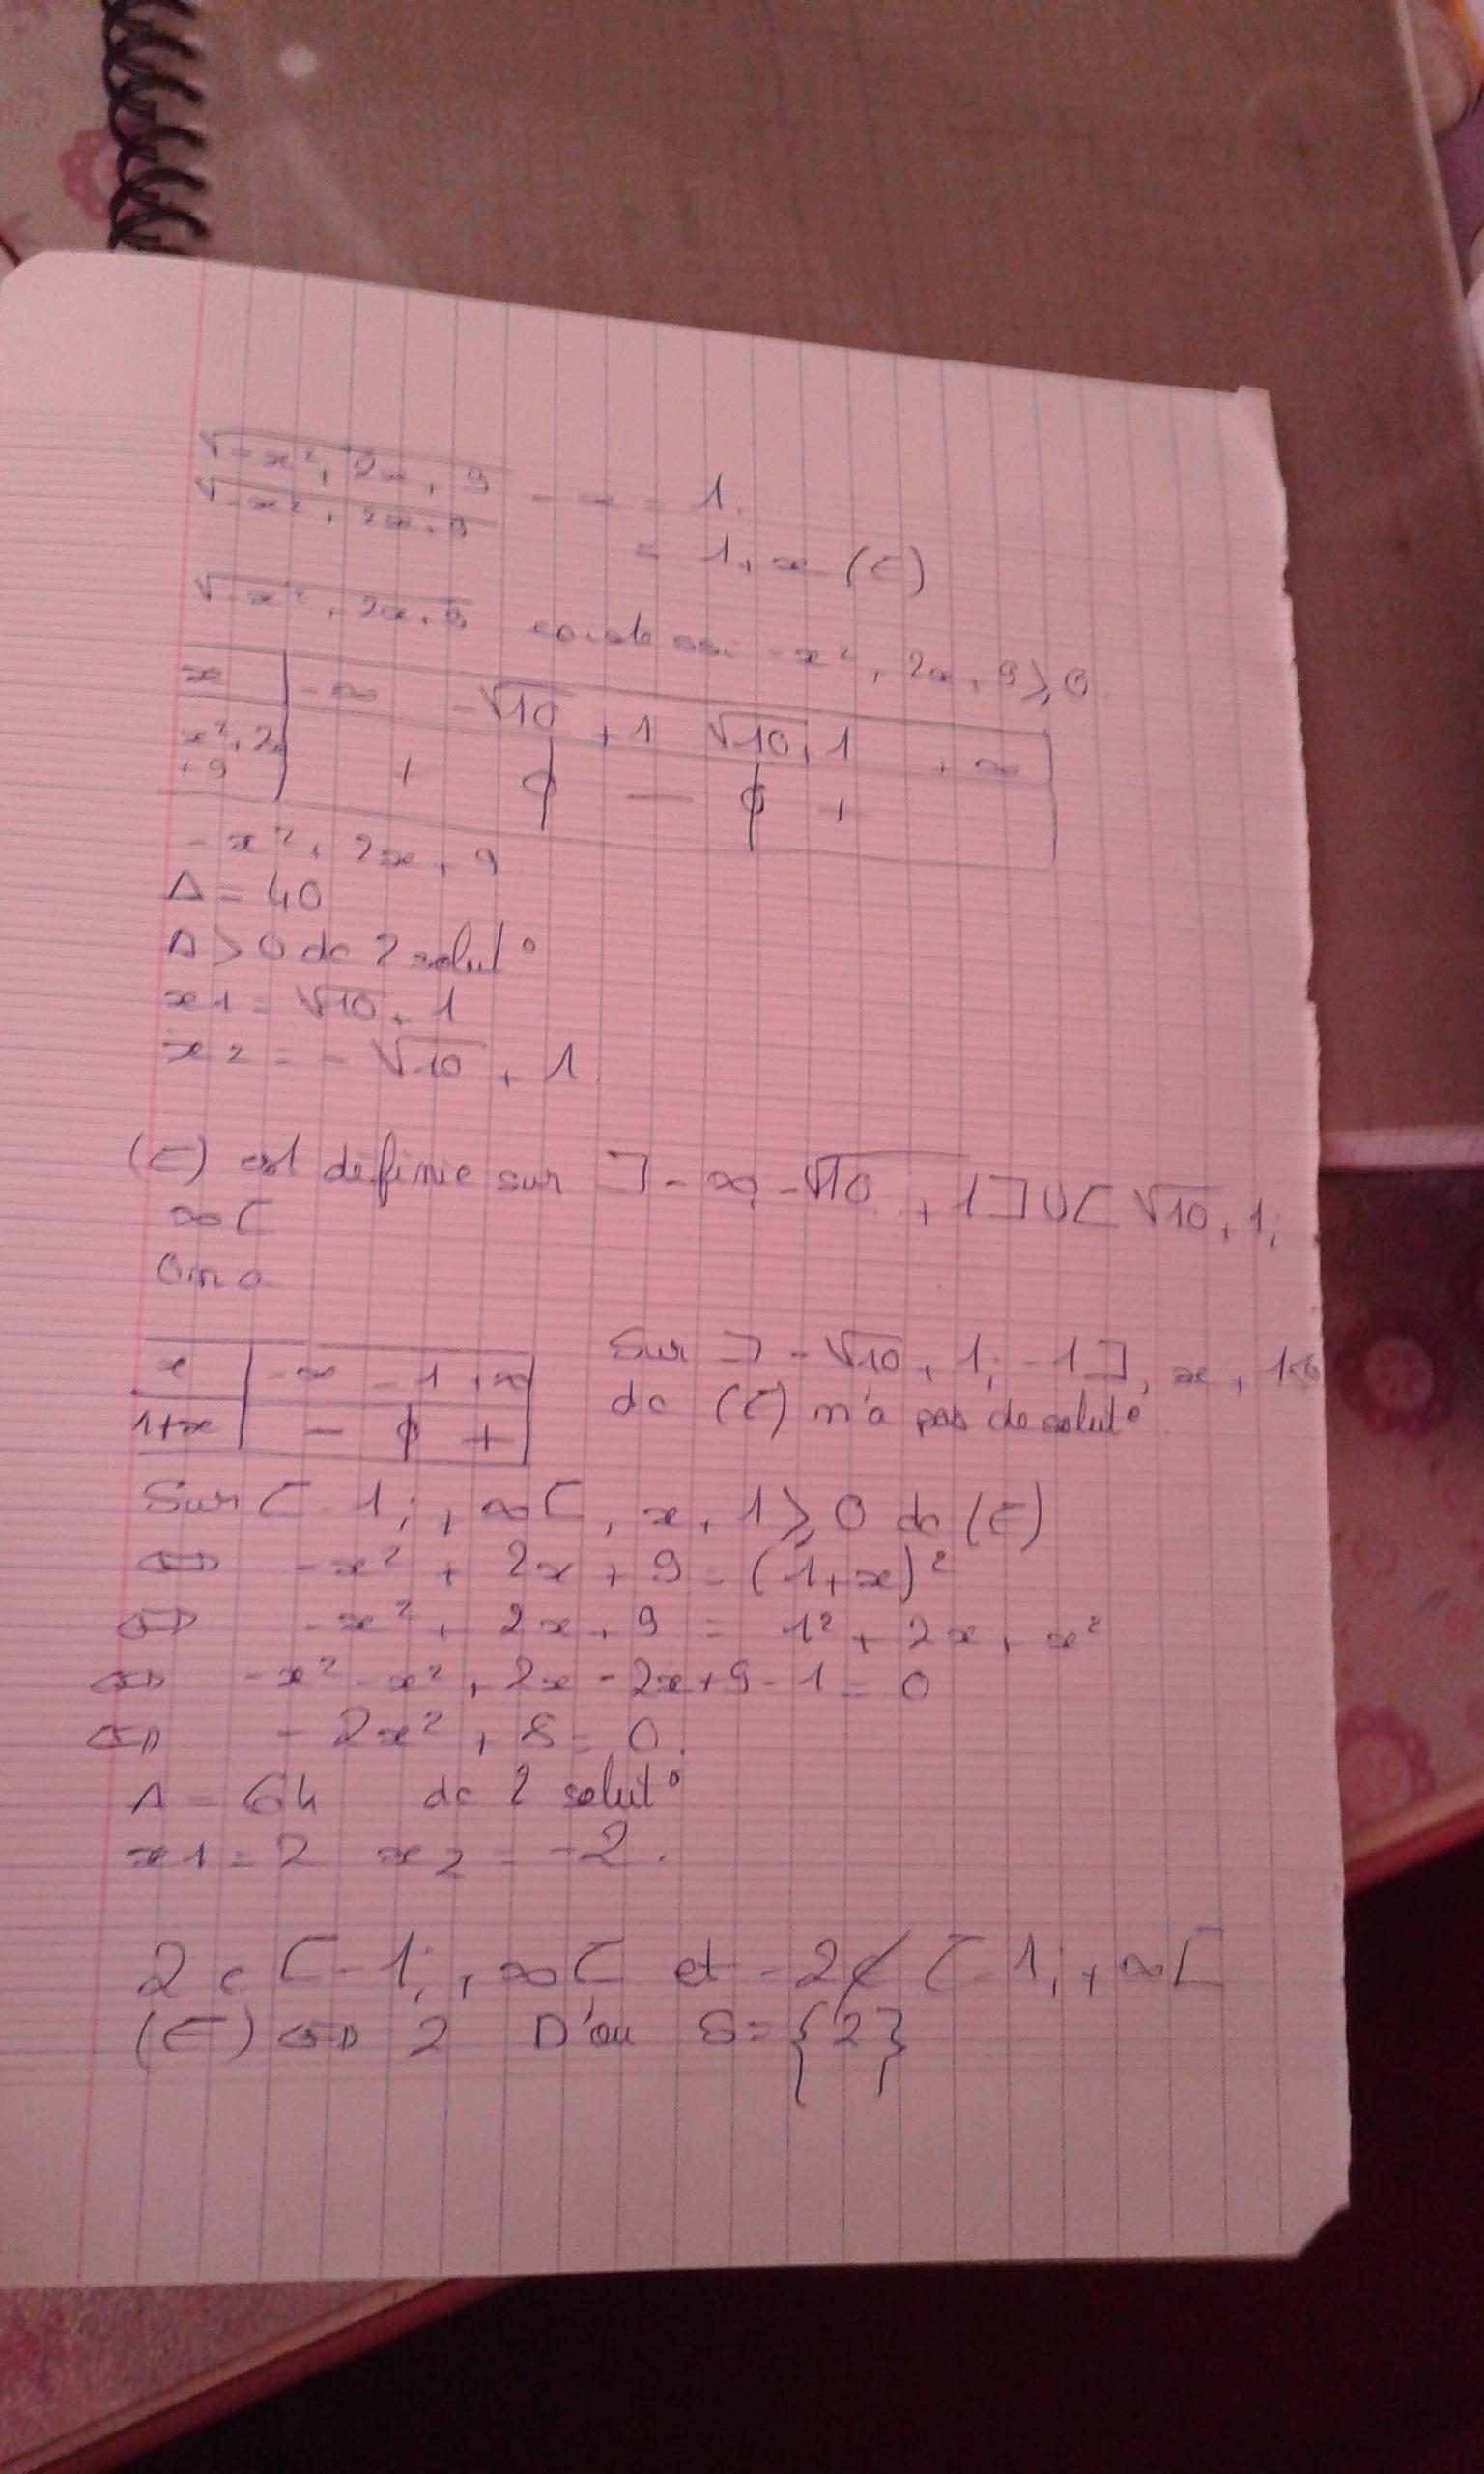 √-x²+2x+9 - x = 1.
√-x²+2x+9 = 1+x (E)
√-x²+2x+9 existe ssi -x²+2x+9⩾0
x -∞ -√10+1 √10+1 +∞
x²+2x+9 + 0 — 0 +
-x²+2x+9
Δ = 40
Δ>0 dc 2 solut°
x1 = √10+1
x2 = -√10+1
(E) est définie sur ]-∞,-√10+1]U[√10+1;
∞[
On a
x -∞ -1 +∞
1+x - 0 +
Sur ]-√10+1;-1], x+1⩽0
dc (E) n'a pas de solut°
Sur [-1;+∞[, x+1⩾0 dc (E)
⇔ -x²+2x+9=(1+x)²
⇔ -x²+2x+9 = 1²+2x+x²
⇔ -x²-x²+2x-2x+9-1=0
⇔ -2x²+8=0.
Δ=64 dc 2 solut°
x1=2 x2=-2.
2 ∈ [-1;+∞[ et -2∉[-1;+∞[
(E) ⇔ 2 D'où S={2}